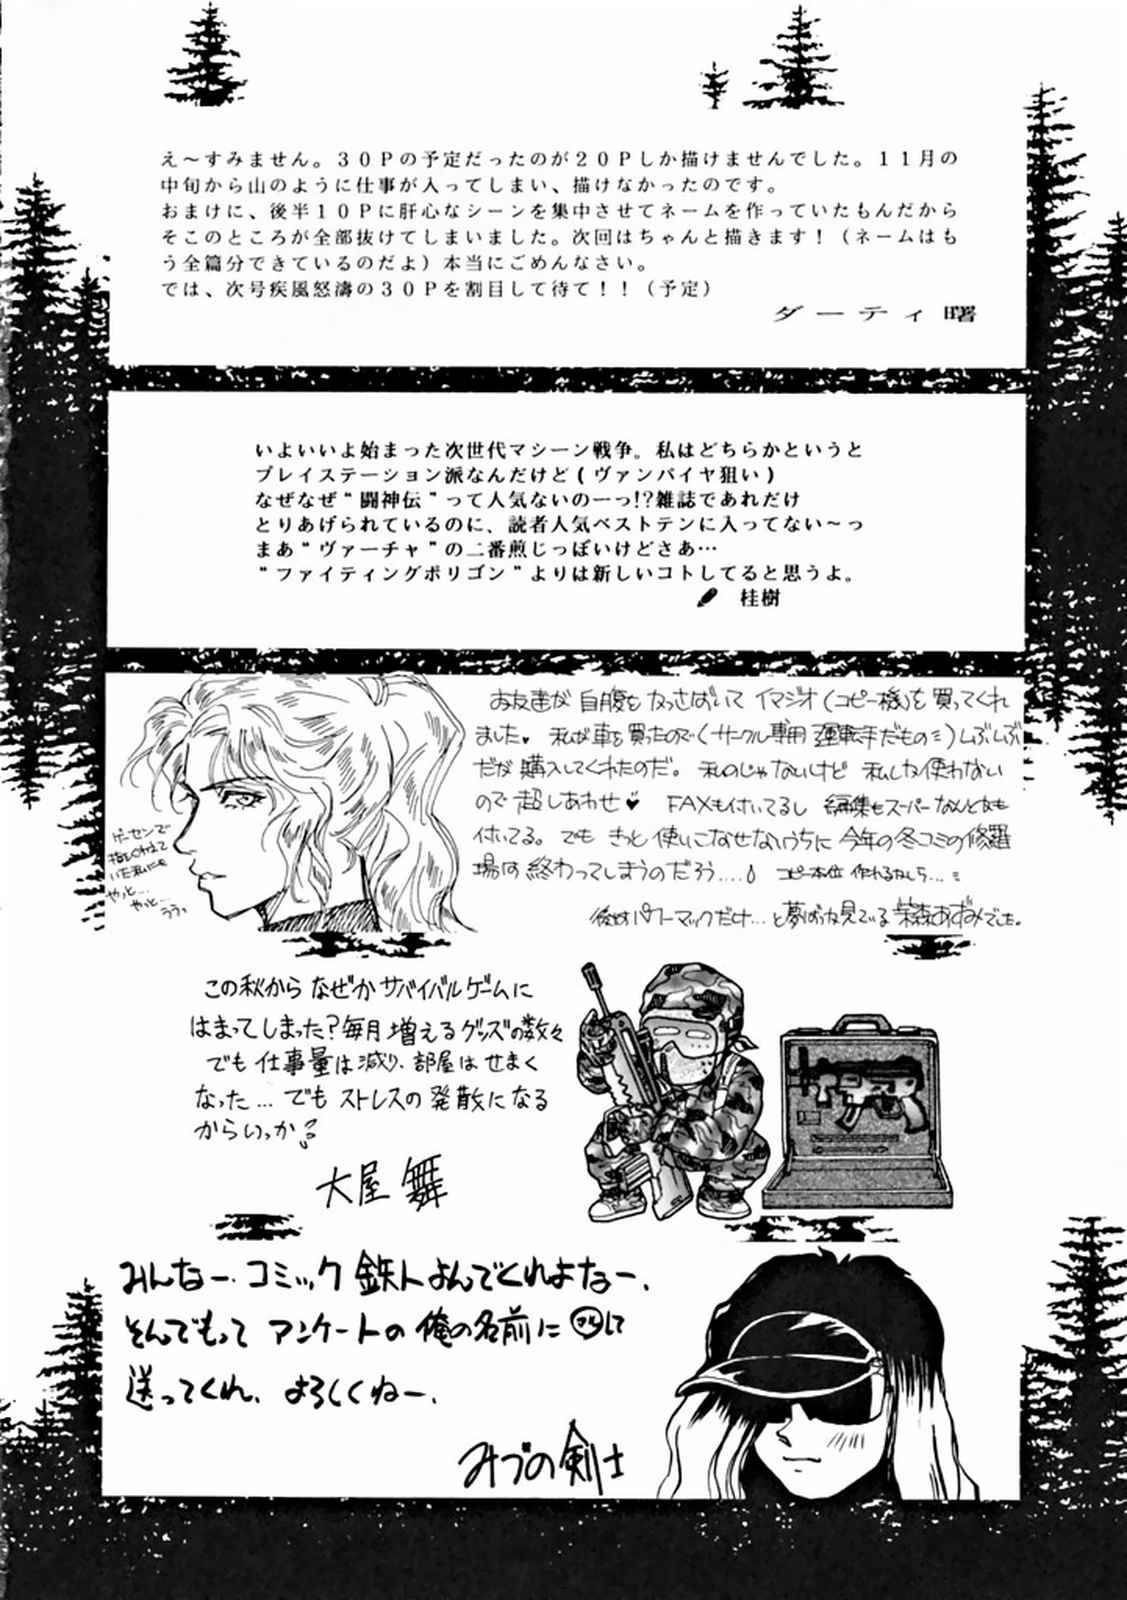 え～すみません。３０Ｐの予定だったのが２０Ｐしか描けませんでした。１１月の
中旬から山のように仕事が入ってしまい、描けなかったのです。
おまけに、後半１０Ｐに肝心なシーンを集中させてネームを作っていたもんだから
そこのところが全部抜けてしまいました。次回はちゃんと描きます！（ネームはも
う全篇分できているのだよ）本当にごめんなさい。
では、次号疾風怒濤の３０Ｐを割目して待て！！（予定）
ダーティ曙
いよいいよ始まった次世代マシーン戦争。私はどちらかというと
プレイステーション派なんだけど（ヴァンパイヤ狙い）
なぜなぜ“闘神伝”って人気ないのーっ!?雑誌であれだけ
とりあげられているのに、読者人気ベストテンに入ってない～っ
まあ“ヴァーチャ”の二番煎じっぽいけどさあ…
“ファイティングポリゴン”よりは新しいコトしてると思うよ。
桂樹
お友達が 自腹をかっさばいて イマジオ(コピー機)を買ってくれ
ました♥ 私が車を買ったので(サークル専用 運転手だもの)しぶしぶ
だが購入してくれたのだ。私のじゃないけど 私しか使わない
ので超しあわせ♥ FAXも付いてるし 編集もスーパーなんとかも
付いてる。でも きっと 使いこなせないうちに 今年の冬コミの修羅
場は 終わってしまうのだろう.... コピー本位 作れるかしら...
後はパワーマックだけ…と夢ばかり見ている 紫森あずみでした。
ゲーセンで
やっと…
やっと…
ううっ
この秋から なぜか サバイバルゲームに
はまってしまった？毎月 増える グッズの数々
でも 仕事量は減り、部屋は せまく
なった … でも ストレスの 発散になる
からいっか
大屋 舞
みんなー、コミック 鉄人よんでくれよなー、
そんでもって アンケートの 俺の名前に して
送ってくれ、よろしくねー、
みづの剣士